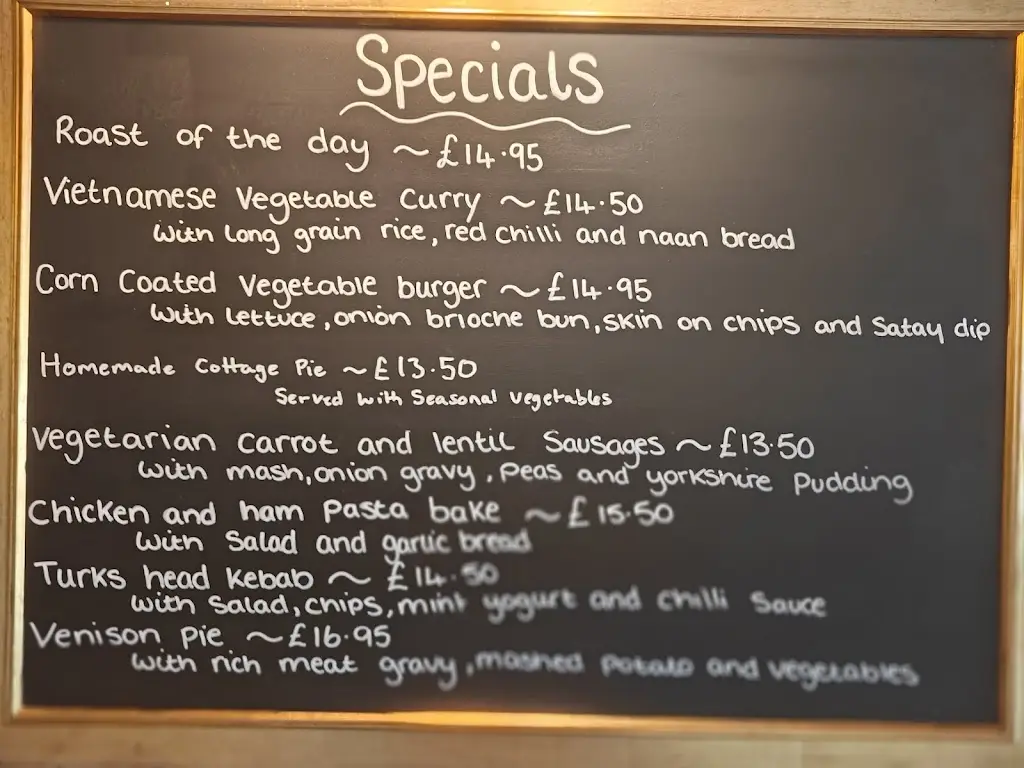 Specials
Roast of the day ~ £14.95
Vietnamese Vegetable Curry ~ £14.50
with long grain rice, red chilli and naan bread
Corn Coated Vegetable burger ~ £14.95
with lettuce, onion brioche bun, skin on chips and Satay dip
Homemade Cottage Pie ~ £13.50
Served with Seasonal vegetables
Vegetarian carrot and lentil Sausages ~ £13.50
with mash, onion gravy, Peas and yorkshire Pudding
Chicken and ham Pasta bake ~ £15.50
with Salad and garlic bread
Turks head Kebab ~ £14.50
with Salad, chips, mint yogurt and chilli Sauce
Venison Pie ~ £16.95
with rich meat gravy, mashed potato and vegetables